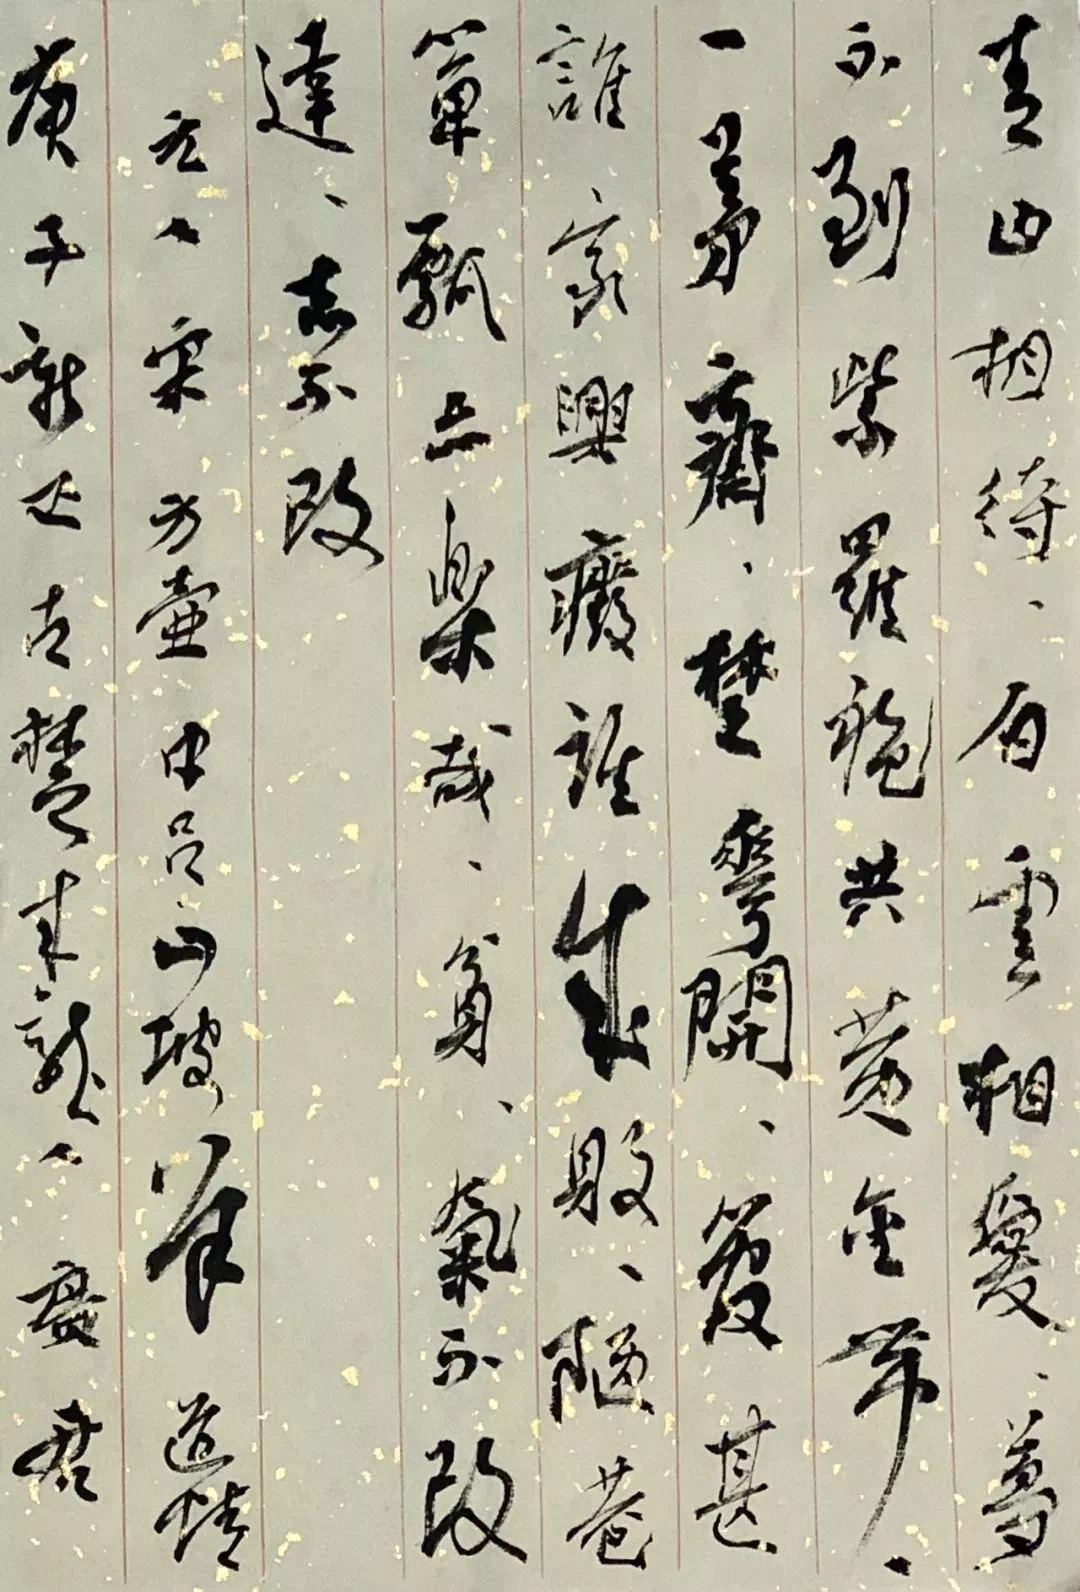 青山相待、白雲相愛、夢
不到紫羅袍共黃金帶、
一茅齋、埜華開、管甚
誰家興廢誰成敗、陋巷
簞瓢亦樂哉、貧、氣不改
達、志不改
元、宋方壺中呂山坡羊 道情
庚子新正古